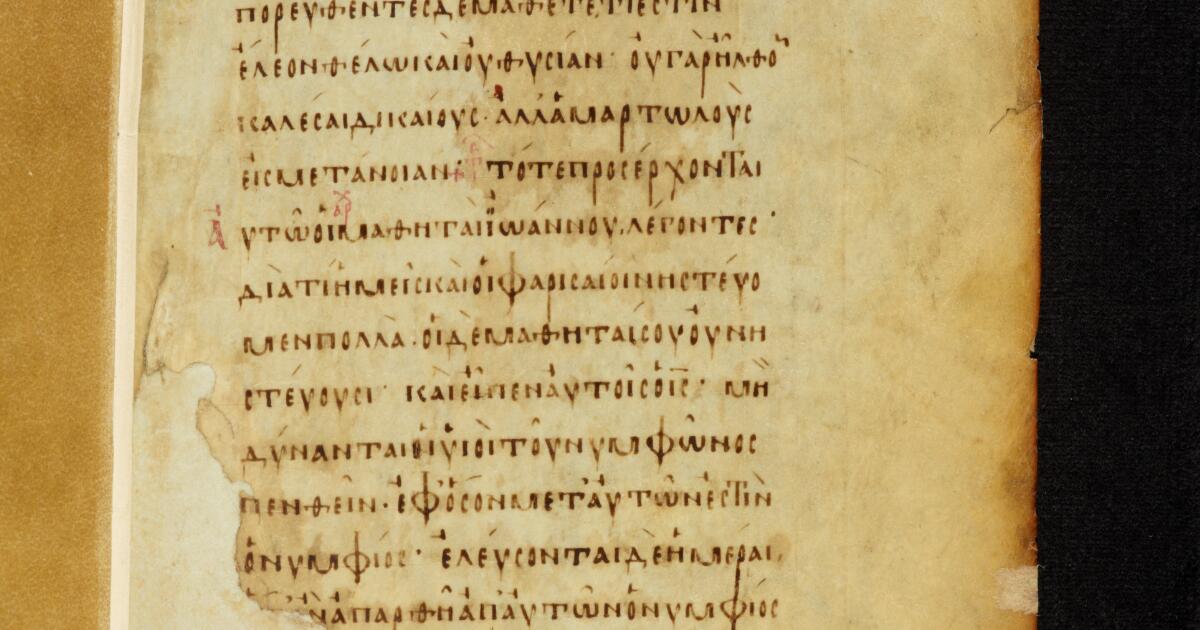 πορευθέντες δὲ μάθετε τί ἐστιν
ἔλεον θέλω καὶ οὐ θυσίαν· οὐ γὰρ ἦλθο
καλέσαι δικαίους· ἀλλὰ ἁμαρτωλοὺς
εἰς μετάνοιαν· τότε προσέρχονται
αυτῶ οἱ μαθηταὶ ἰωάννου, λέγοντες·
διατί ἡμεῖς καὶ οἱ φαρισαῖοι νηστεύο
μεν πολλὰ· οἱ δὲ μαθηταί σου οὐ νη
στέυουσι· καὶ εἶπεν ἀυτοῖς ὁ ις· μὴ
δύνανται οἱ ὑιοὶ τοῦ νυμφῶνος
πενθεῖν· ἐφ' ὅσον μετ' ἀυτῶν ἐστὶν
ὁ νυμφίος· ἐλέυσονται δὲ ἡμέραι,
ἀπαρθῆ ἀπ' ἀυτῶν ὁ νυμφίος